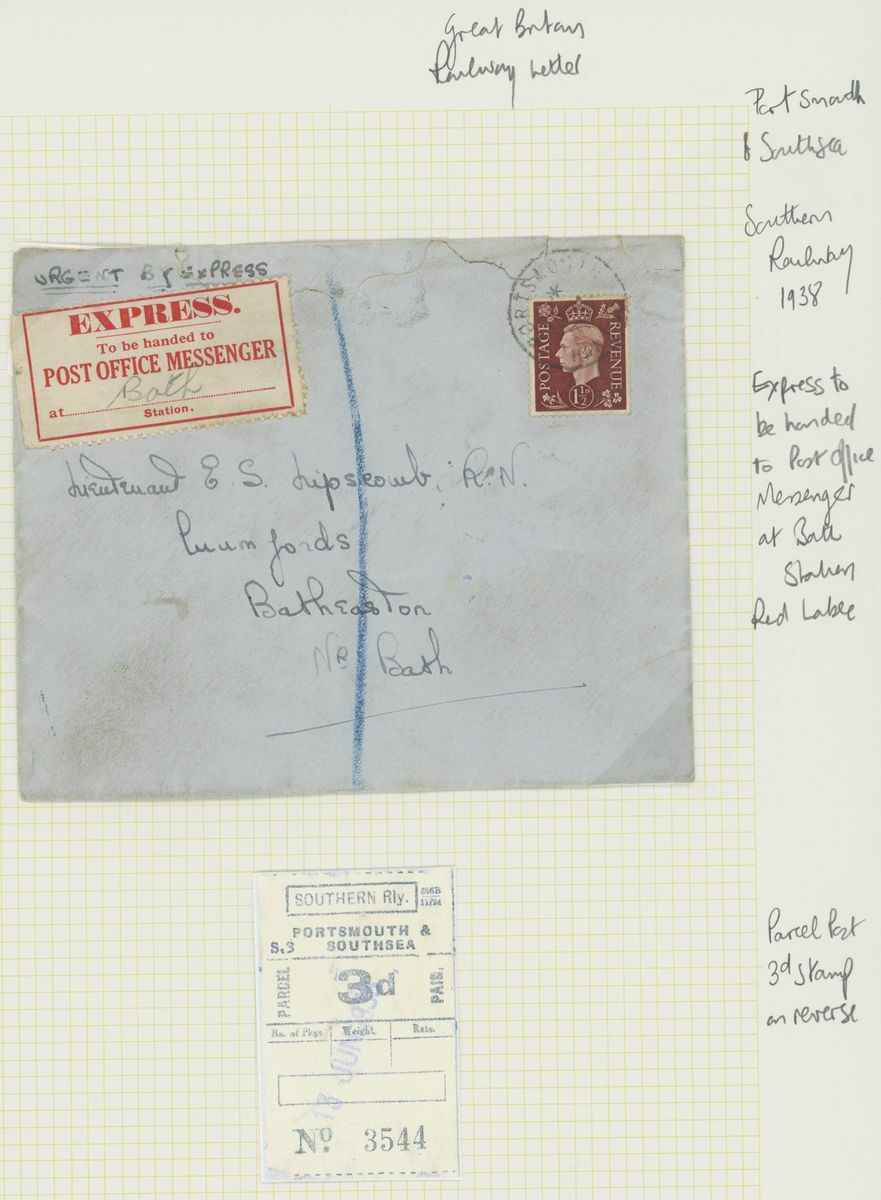 Great Britain
Railway Letter
Portsmouth
& Southsea
Southern
Railway
1938
Express to
be handed
to Post Office
Messenger
at Bath
Station
Red Label
URGENT BY EXPRESS
EXPRESS.
To be handed to
POST OFFICE MESSENGER
at Bath
Station.
PORTSMOUTH
POSTAGE REVENUE
1½D
Lieutenant E. S. Lipscomb, R.N.
Batheaston
Nr Bath
SOUTHERN Rly.
PORTSMOUTH &
S.3 SOUTHSEA
PARCEL 3d PAID.
No. of Pkgs Weight. Rate.
13 JUN
No 3544
Parcel Post
3d stamp
on reverse